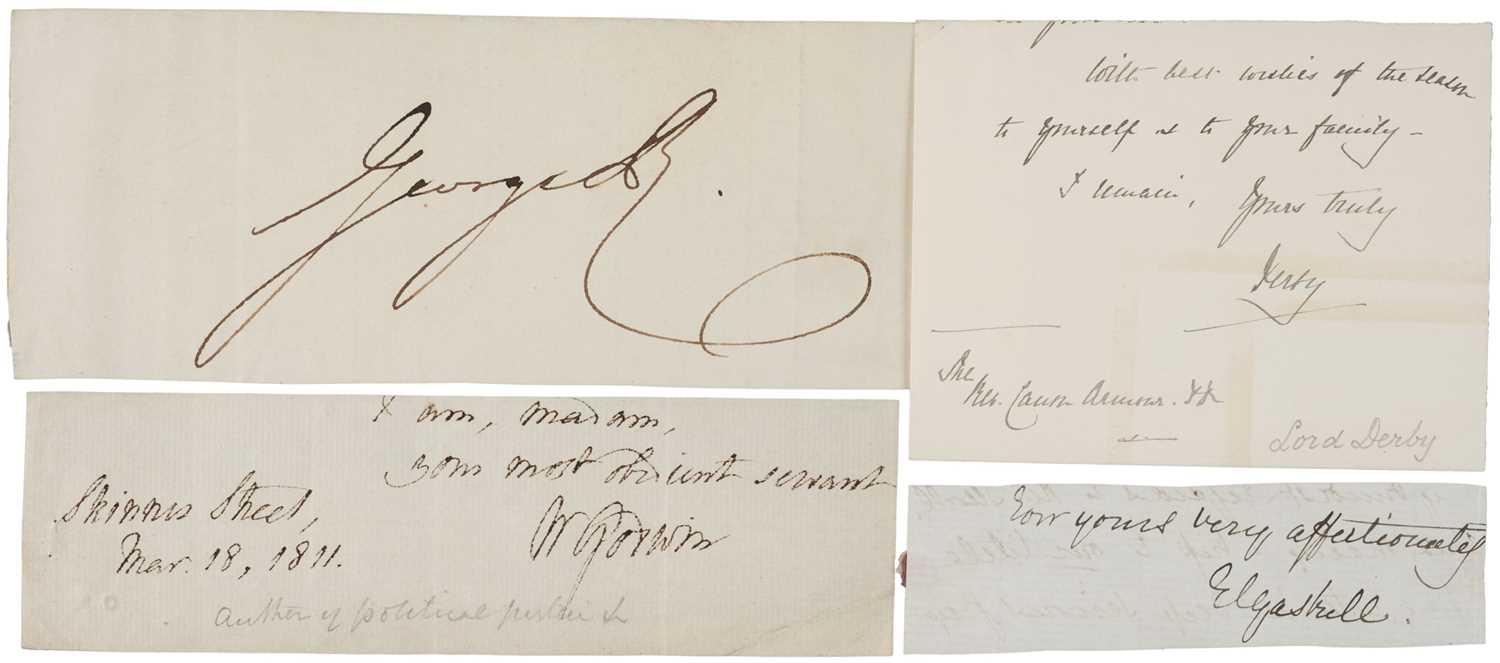 George R.
With best wishes of the season
to yourself & to your family –
I remain, Yours truly
Derby
The
Rev. Canon Armour. DD
Lord Derby
I am, madam,
your most obedient servant
W Godwin
Skinner Street,
Mar. 18, 1811.
author of political justice &
Ever yours very affectionately
E C Gaskell.